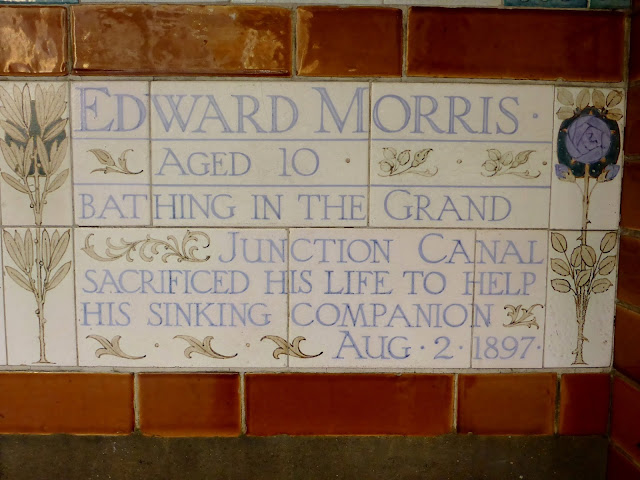 EDWARD MORRIS ·
AGED 10 ·
BATHING IN THE GRAND
JUNCTION CANAL
SACRIFICED HIS LIFE TO HELP
HIS SINKING COMPANION
AUG · 2 · 1897 ·